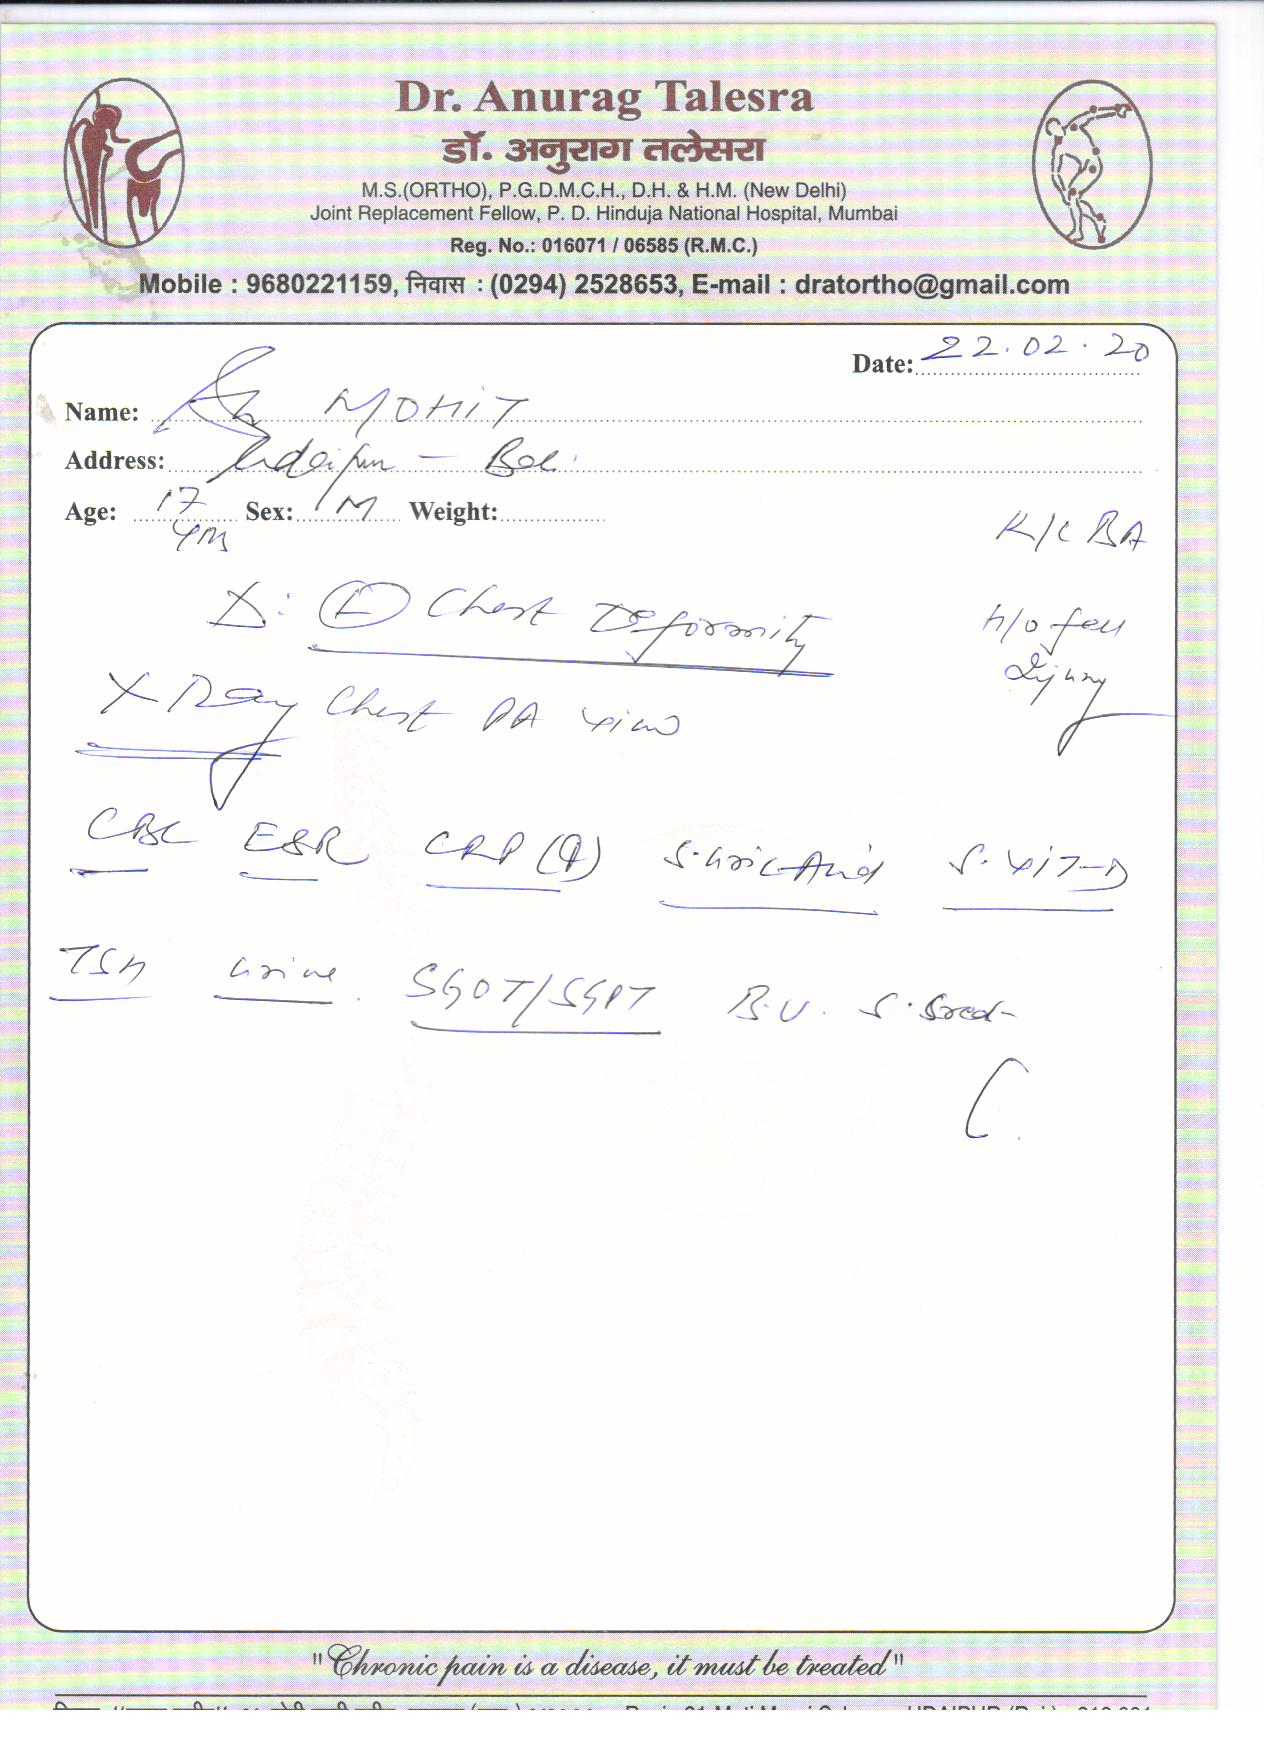 Dr. Anurag Talesra
डॉ. अनुराग तलेसरा
M.S.(ORTHO), P.G.D.M.C.H., D.H. & H.M. (New Delhi)
Joint Replacement Fellow, P. D. Hinduja National Hospital, Mumbai
Reg. No.: 016071 / 06585 (R.M.C.)
Mobile : 9680221159, निवास : (0294) 2528653, E-mail : dratortho@gmail.com
Date: 22.02.20
Name: MOHIT
Address: Udaipur -
Age: 17 Sex: M Weight:
K/C BA
Δ: Chest Deformity
h/o fall
Injury
X-Ray Chest PA view
CBC ESR CRP (Q) S. Uric Acid S. VIT-D
TSH Urine SGOT/SGPT B.U. S.
"Chronic pain is a disease, it must be treated"